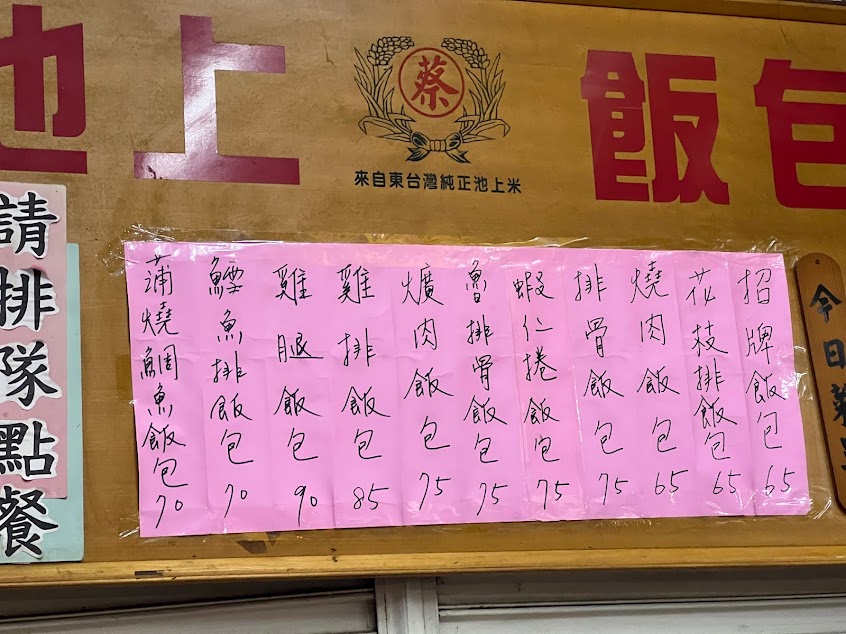 池上
飯包
蔡
來自東台灣純正池上米
請排隊點餐
招牌飯包65
花枝排飯包65
燒肉飯包65
排骨飯包75
蝦仁捲飯包75
魯排骨飯包75
爌肉飯包75
雞排飯包85
雞腿飯包90
鱈魚排飯包70
蒲燒鯛魚飯包70
今日菜